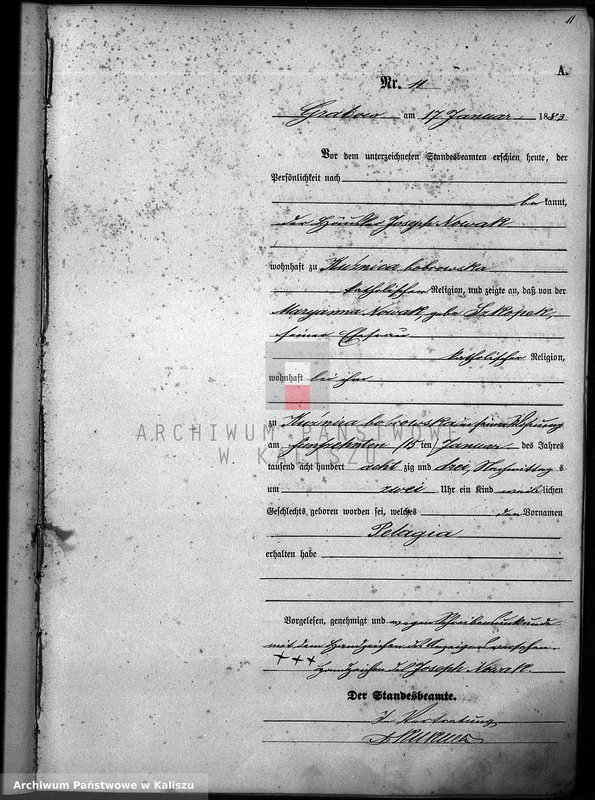 11
A.
Nr. 11
Grabow am 17 Januar 1883
Vor dem unterzeichneten Standesbeamten erschien heute, der
Persönlichkeit nach
bekannt,
der Häusler Joseph Nowak
wohnhaft zu Kuźnica bobrowska
katholischer Religion, und zeigte an, daß von der
Maryanna Nowak, geb. Szkopek,
seiner Ehefrau
katholischer Religion,
wohnhaft bei ihm
zu Kuźnica bobrowska in seiner Wohnung
am fünfzehnten /15 ten/ Januar des Jahres
tausend acht hundert achtzig und drei, Nachmittags
um zwei Uhr ein Kind weiblichen
Geschlechts geboren worden sei, welches den Vornamen
Pelagia
erhalten habe
Vorgelesen, genehmigt und wegen Schreibensunkunde
mit dem Handzeichen des Anzeigers versehen.
+++ Handzeichen des Joseph Nowak
Der Standesbeamte.
In Vertretung
ARCHIWUM PAŃSTWOWE
W KALISZU
Archiwum Państwowe w Kaliszu